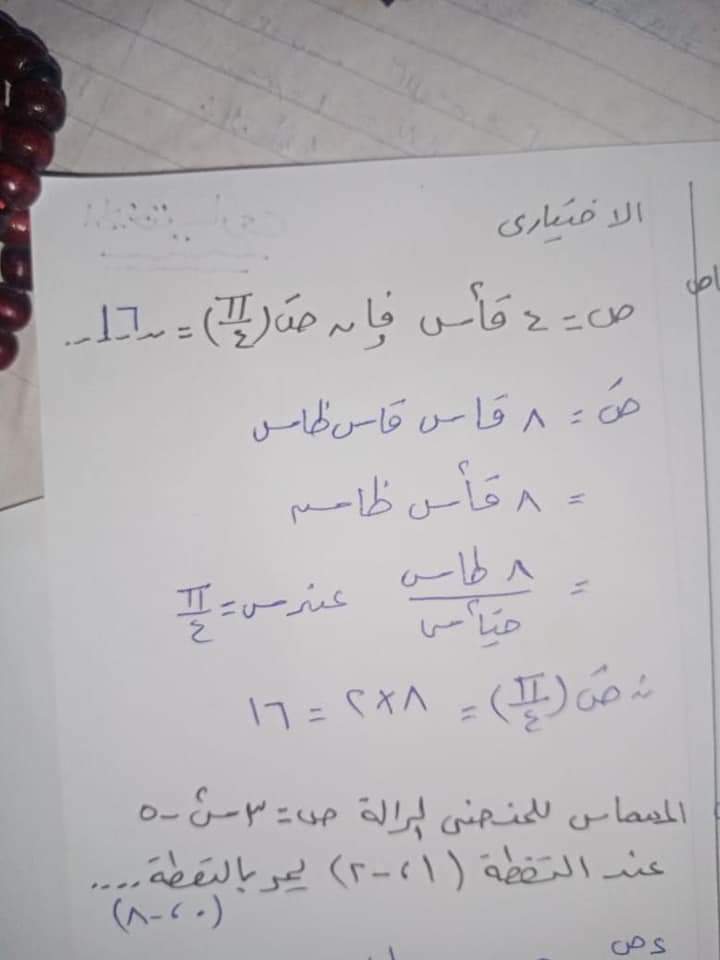 الاختيارى
ص = ٤ قا٢س فإن صَ(π/٤) = ..١٦..
صَ = ٨ قاس قاس ظاس
= ٨ قا٢س ظاس
= ٨ ظاس / حتا٢س عندس = π/٤
∴ صَ(π/٤) = ٨×٢ = ١٦
المماس للمنحنى لدالة ص = ٣س٢ - ٥
عند النقطة (١، -٢) يمر بالنقطة....
(٠، -٨)
ءص